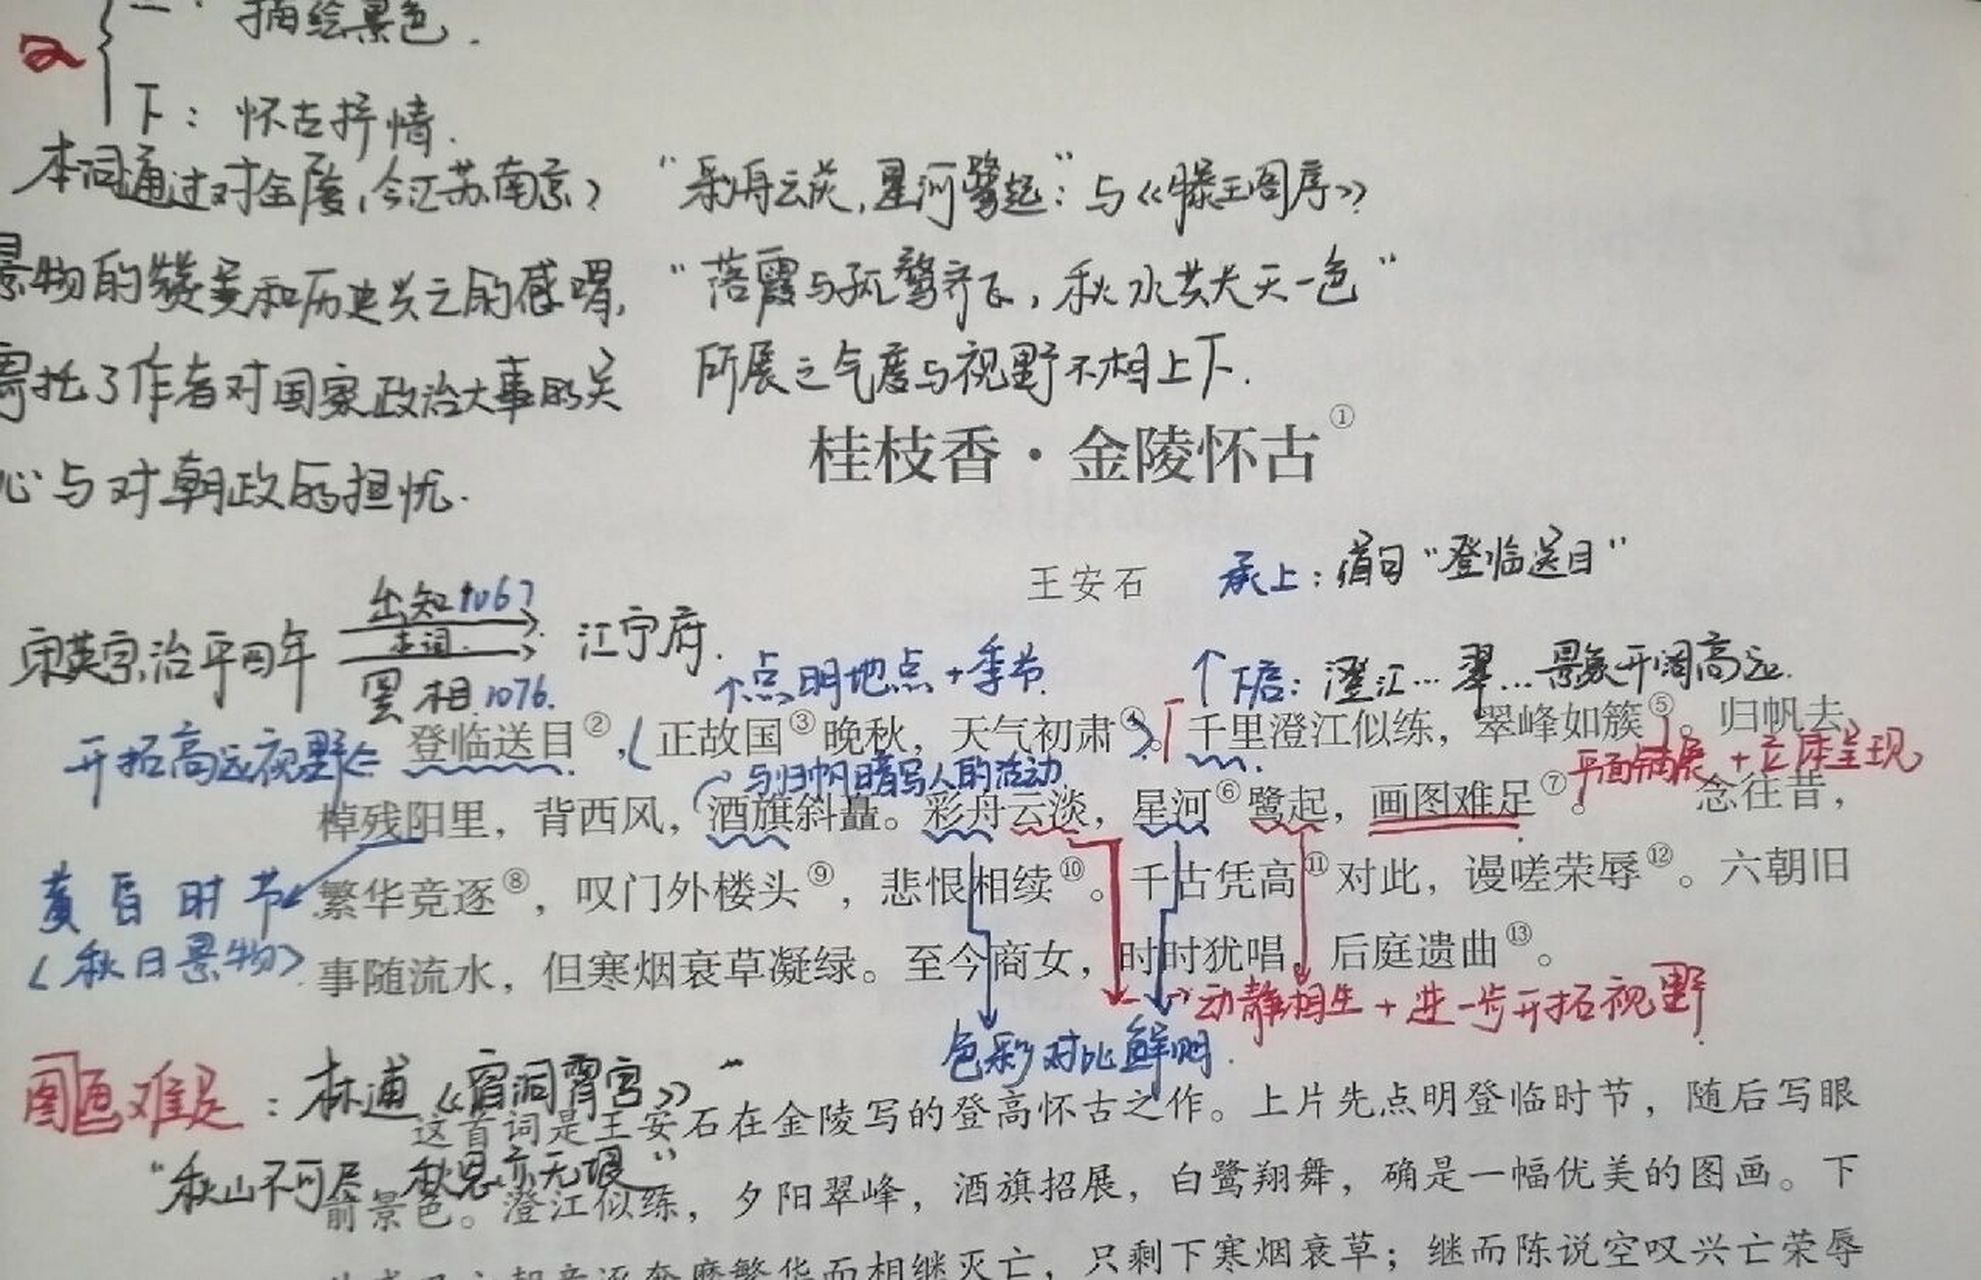 描绘景色.
下：怀古抒情.
本词通过对金陵(今江苏南京)
景物的赞美和历史兴亡的感喟,
寄托了作者对国家政治大事的关
心与对朝政的担忧.
"彩舟云淡,星河鹭起"：与《滕王阁序》
"落霞与孤鹜齐飞,秋水共长天一色"
所展之气度与视野不相上下.
桂枝香·金陵怀古①
王安石
承上：首句"登临送目"
宋英宗治平四年
出知1067
本词
罢相1076.
江宁府.
↑点明地点+季节.
↑下启：澄江…翠…景象开阔高远.
开拓高远视野⇐
登临送目②，正故国③晚秋，天气初肃④。千里澄江似练，翠峰如簇⑤。归帆去
与归帆暗写人的活动
平面铺展+立体呈现
棹残阳里，背西风，酒旗斜矗。彩舟云淡，星河⑥鹭起，画图难足⑦。 念往昔，
黄昏时节
繁华竞逐⑧，叹门外楼头⑨，悲恨相续⑩。千古凭高⑪对此，谩嗟荣辱⑫。六朝旧
(秋日景物)
事随流水，但寒烟衰草凝绿。至今商女，时时犹唱，后庭遗曲⑬。
动静相生+进一步开拓视野
色彩对比鲜明.
图画难足：林逋《宿洞霄宫》
"秋山不可尽 秋思亦无垠"
这首词是王安石在金陵写的登高怀古之作。上片先点明登临时节，随后写眼
前景色。澄江似练，夕阳翠峰，酒旗招展，白鹭翔舞，确是一幅优美的图画。下
繁华而相继灭亡，只剩下寒烟衰草；继而陈说空叹兴亡荣辱